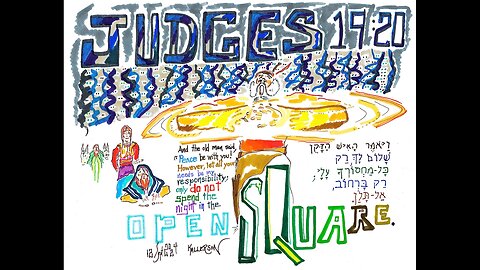 JUDGES 19:20
And the old man said,
Peace be with you!
However, let all your
needs be my
responsibility;
only do not
spend the
night in the
OPEN SQUARE.
ויאמר האיש הזקן
שלום לך רק
כל-מחסורך עלי;
רק ברחוב,
אל-תלן.